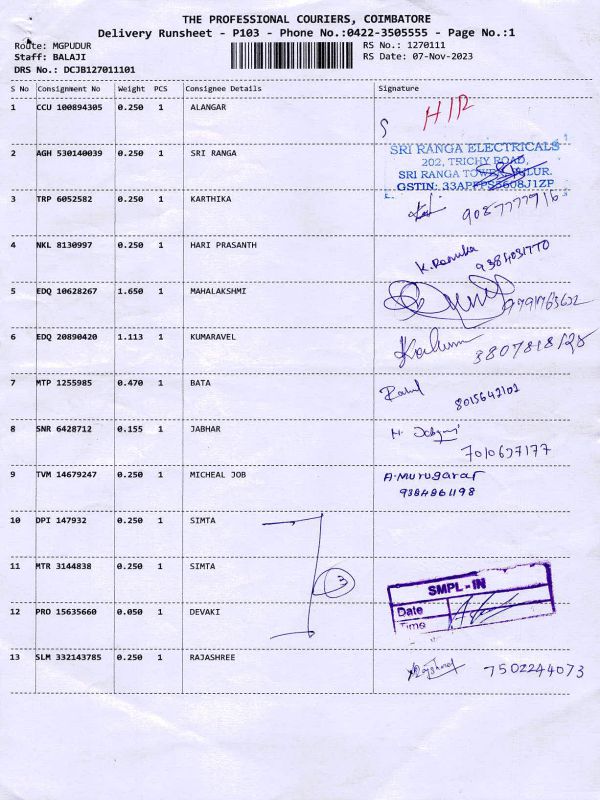 THE PROFESSIONAL COURIERS, COIMBATORE
Delivery Runsheet - P103 - Phone No.:0422-3505555 - Page No.:1
Route: MGPUDUR RS No.: 1270111
Staff: BALAJI RS Date: 07-Nov-2023
DRS No.: DCJB127011101
S No Consignment No Weight PCS Consignee Details Signature
1 CCU 100894305 0.250 1 ALANGAR
H12
2 AGH 530140039 0.250 1 SRI RANGA
SRI RANGA ELECTRICALS
202, TRICHY ROAD,
SRI RANGA TOWER,
GSTIN:
3 TRP 6052582 0.250 1 KARTHIKA
9087777916
4 NKL 8130997 0.250 1 HARI PRASANTH
K. Renuka
9384031770
5 EDQ 10628267 1.650 1 MAHALAKSHMI
6 EDQ 20890420 1.113 1 KUMARAVEL
7 MTP 1255985 0.470 1 BATA
8015642102
8 SNR 6428712 0.155 1 JABHAR
7010637177
9 TVM 14679247 0.250 1 MICHEAL JOB
A. Murugavar
9384861198
10 DPI 147932 0.250 1 SIMTA
11 MTR 3144838 0.250 1 SIMTA
3
SMPL - IN
Date
Time
12 PRO 15635660 0.050 1 DEVAKI
13 SLM 332143785 0.250 1 RAJASHREE
7502244073